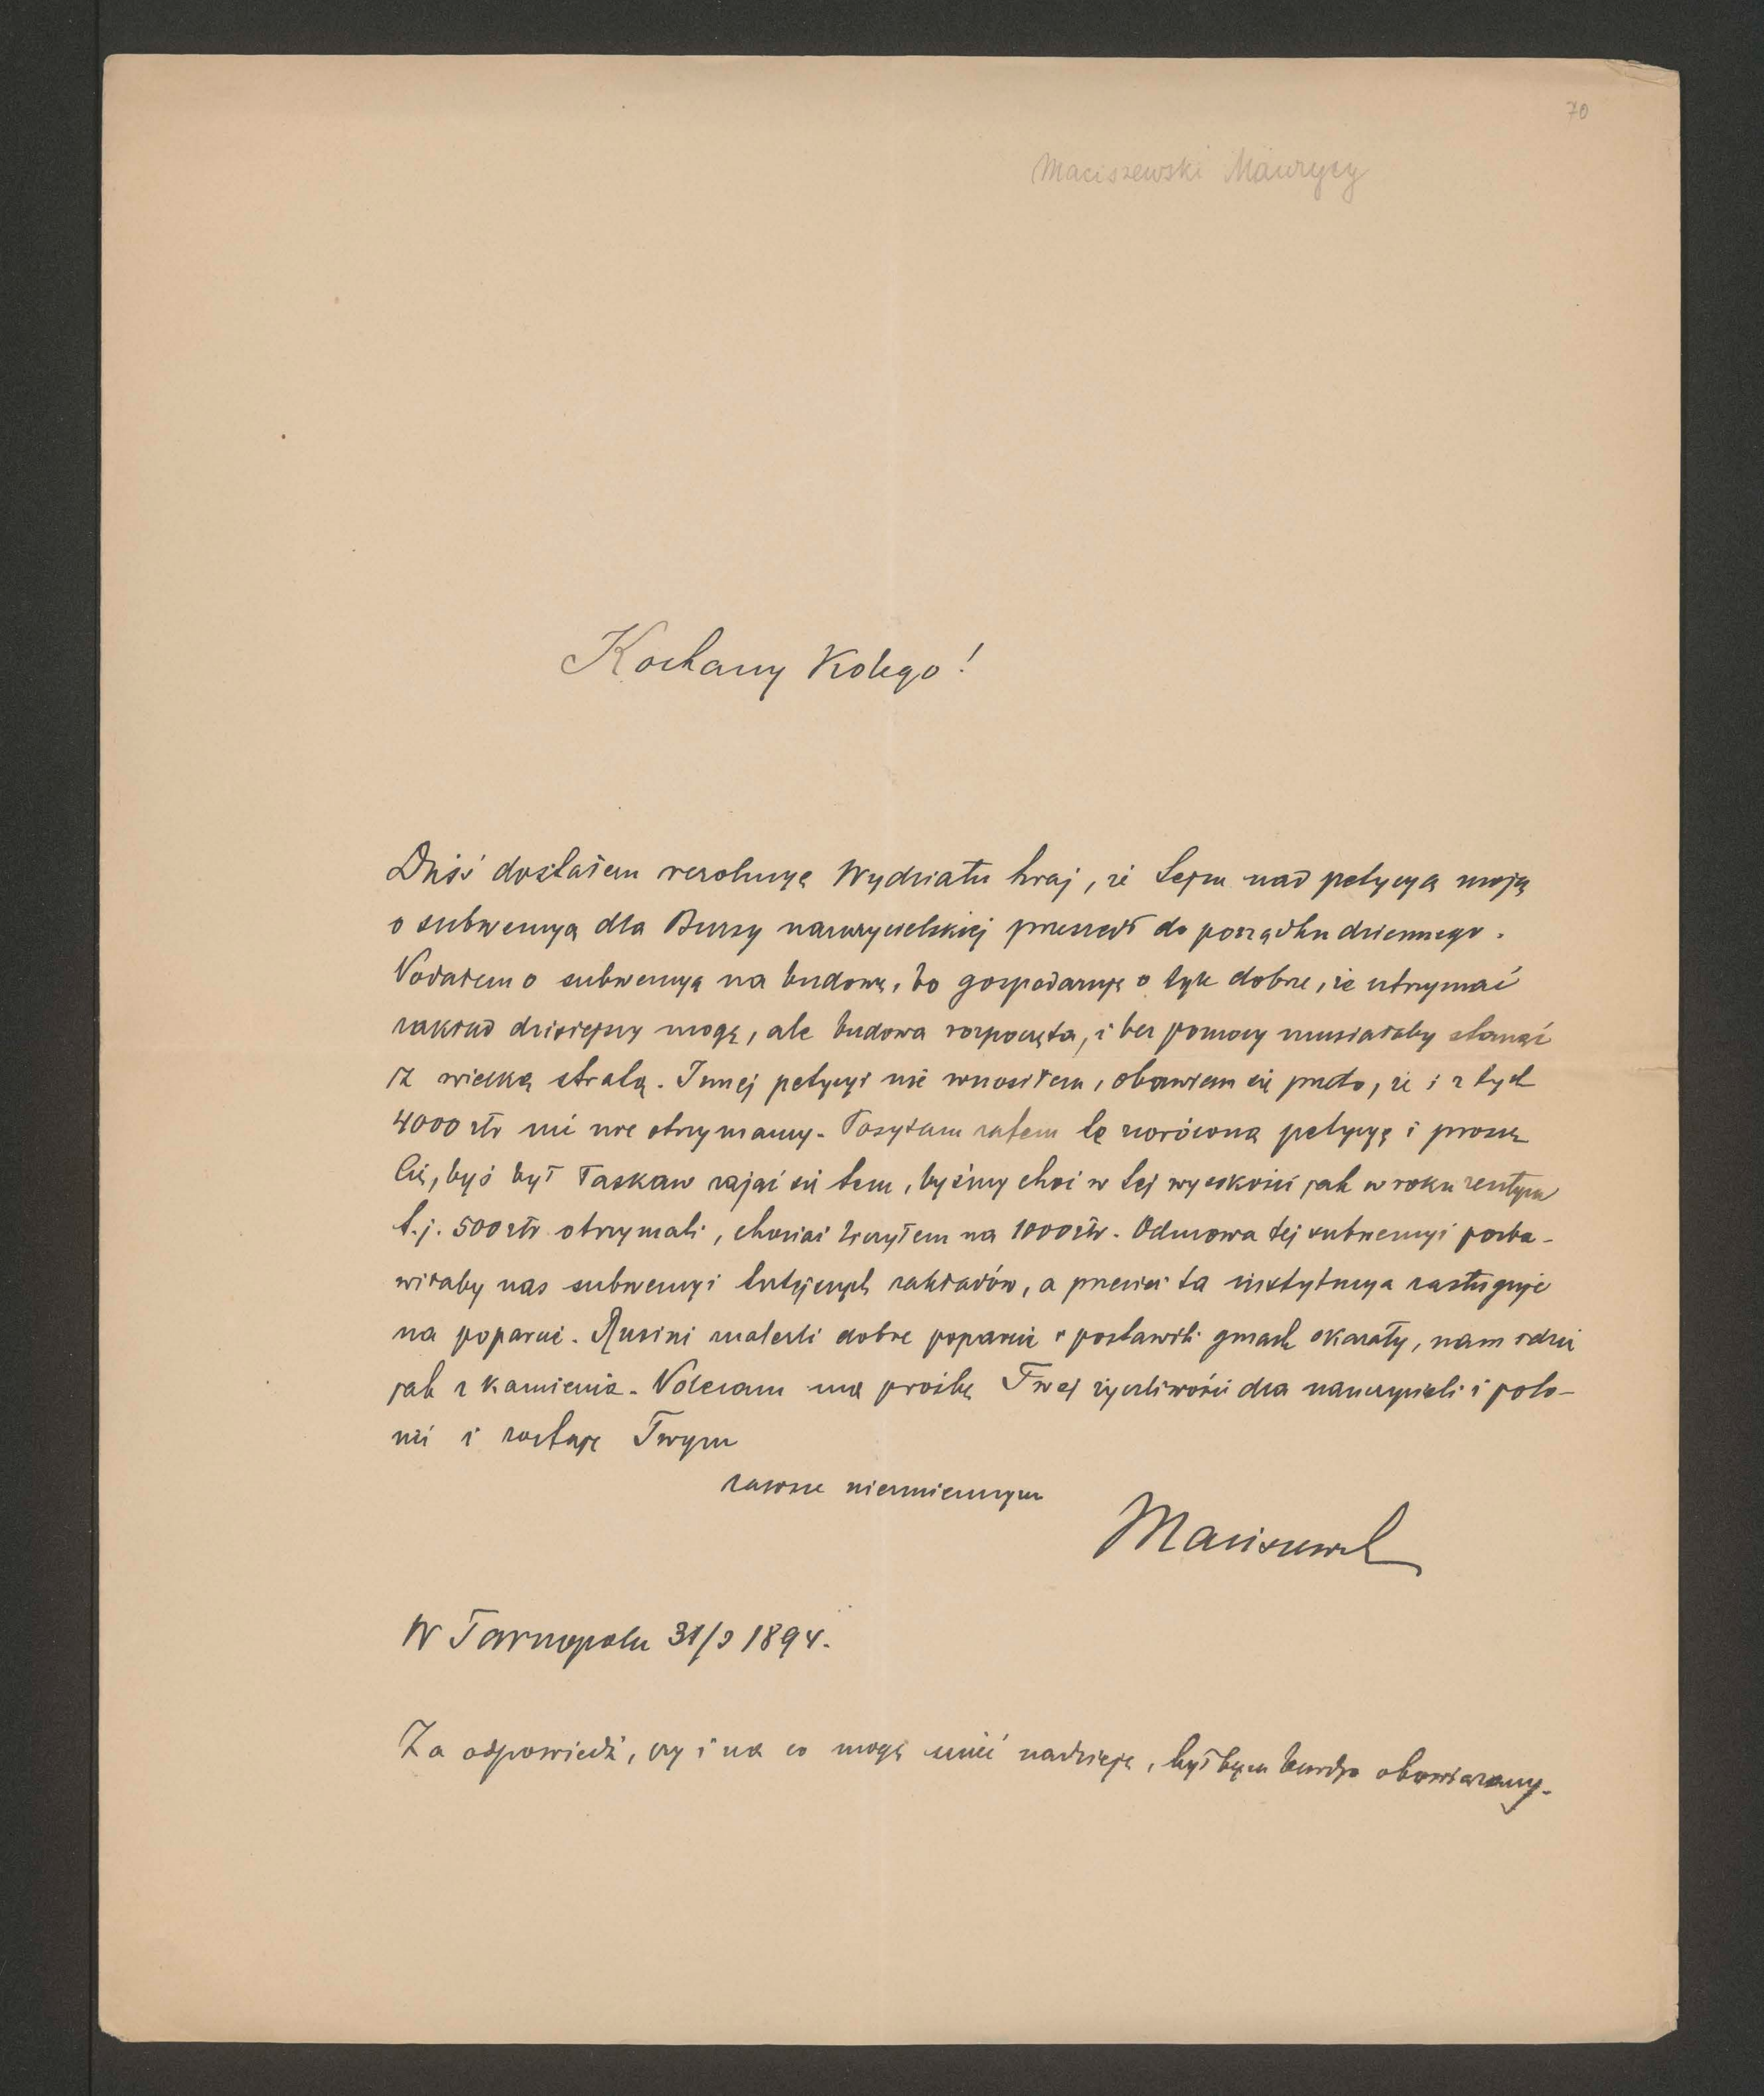 70
Maciszewski Maurycy
Kochany Kolego!
Dziś dostałem rezolucyę Wydziału kraj, że Sejm nad petycyą moją
o subwencyą dla Bursy nauczycielskiej przeszedł do porządku dziennego.
Podałem o subwencyą na budowę, bo gospodaruję o tyle dobrze, że utrzymać
zakład dzisiejszy mogę, ale budowa rozpoczęta, i bez pomocy musiałaby stanąć
z wielką stratą. Innej petycyi nie wnosiłem, obawiam się przeto, że i z tych
4000 złr nic nie otrzymamy. Posyłam zatem tę zwróconą petycyę i proszę
Cię, byś był łaskaw zająć się tem, byśmy choć w tej wysokości jak w roku zeszłym
t.j. 500 złr otrzymali, chociaż liczyłem na 1000 złr. Odmowa tej subwencyi pozba-
wiłaby nas subwencyi tutejszych zakładów, a przecież ta instytucya zasługuje
na poparcie. Rusini znaleźli dobre poparcie i postawili gmach okazały, nam idzie
jak z kamienia. Polecam mą prośbę Twej życzliwości dla nauczycieli i polo-
nii i zostaję Twym
zawsze niezmiennym
Maciszewsk
W Tarnopolu 31/3 1894.
Za odpowiedź, czy i na co mogę mieć nadzieję, byłbym bardzo obowiązany.